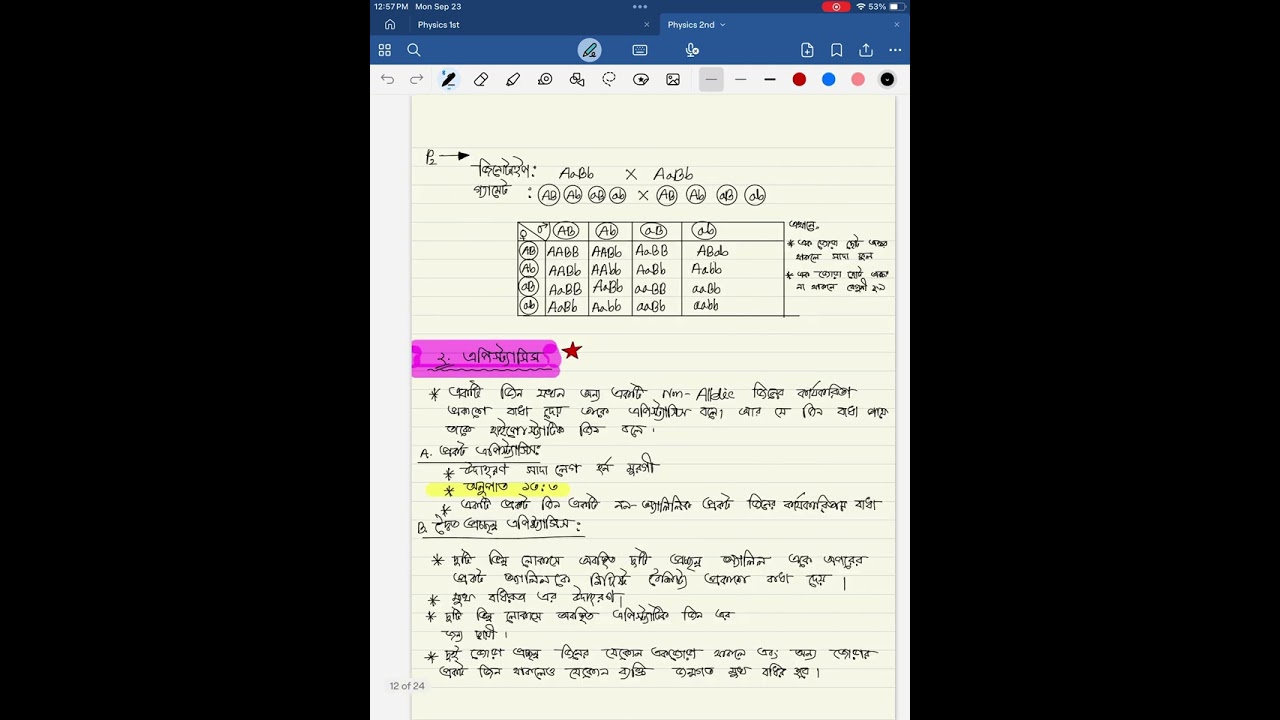 12:57 PM Mon Sep 23
53%
Physics 1st
Physics 2nd
P2 →
জিনোটাইপ: AaBb × AaBb
গ্যামেট : AB Ab aB ab × AB Ab aB ab
♀ ♂ AB Ab aB ab
AB AABB AABb AaBB ABab
Ab AABb AAbb AaBb Aabb
aB AaBB AaBb aaBB aaBb
ab AaBb Aabb aaBb aabb
এখানে,
* এক জোড়া ছোট অক্ষর
থাকলে সাদা ফুল
* এক জোড়া ছোট অক্ষর
না থাকলে বেগুনী ফুল
২. এপিস্ট্যাসিস
* একটি জিন যখন অন্য একটি Non-Allelic জিনের কার্যকারিতা
প্রকাশে বাধা দেয় তাকে এপিস্ট্যাসিস বলে, আর যে জিন বাধা পায়
তাকে হাইপোস্ট্যাটিক জিন বলে।
A. প্রকট এপিস্ট্যাসিস:
* উদাহরণ সাদা লেগ হর্ন মুরগী
* অনুপাত ১৩:৩
* একটি প্রকট জিন একটি নন-অ্যালিলিক প্রকট জিনের কার্যকারিতায় বাধা
B. দ্বৈত প্রচ্ছন্ন এপিস্ট্যাসিস:
* দুটি ভিন্ন লোকাসে অবস্থিত দুটি প্রচ্ছন্ন অ্যালিল একে অপরের
প্রকট অ্যালিলকে বৈশিষ্ট্য প্রকাশে বাধা দেয়।
* মূক বধিরতা এর উদাহরণ।
* দুটি ভিন্ন লোকাসে অবস্থিত এপিস্ট্যাটিক জিন এর
জন্য দায়ী।
* দুই জোড়া প্রচ্ছন্ন জিনের যেকোন একজোড়া থাকলে এবং অন্য জোড়ার
প্রকট জিন থাকলেও যেকোন ব্যক্তি জন্মগত মূক বধির হবে।
12 of 24